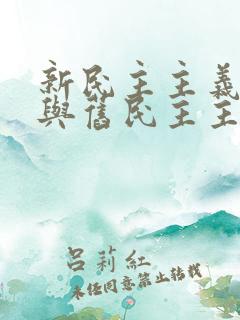 新民主主義
與舊民主主
呂莉紅
未經同意禁止轉載